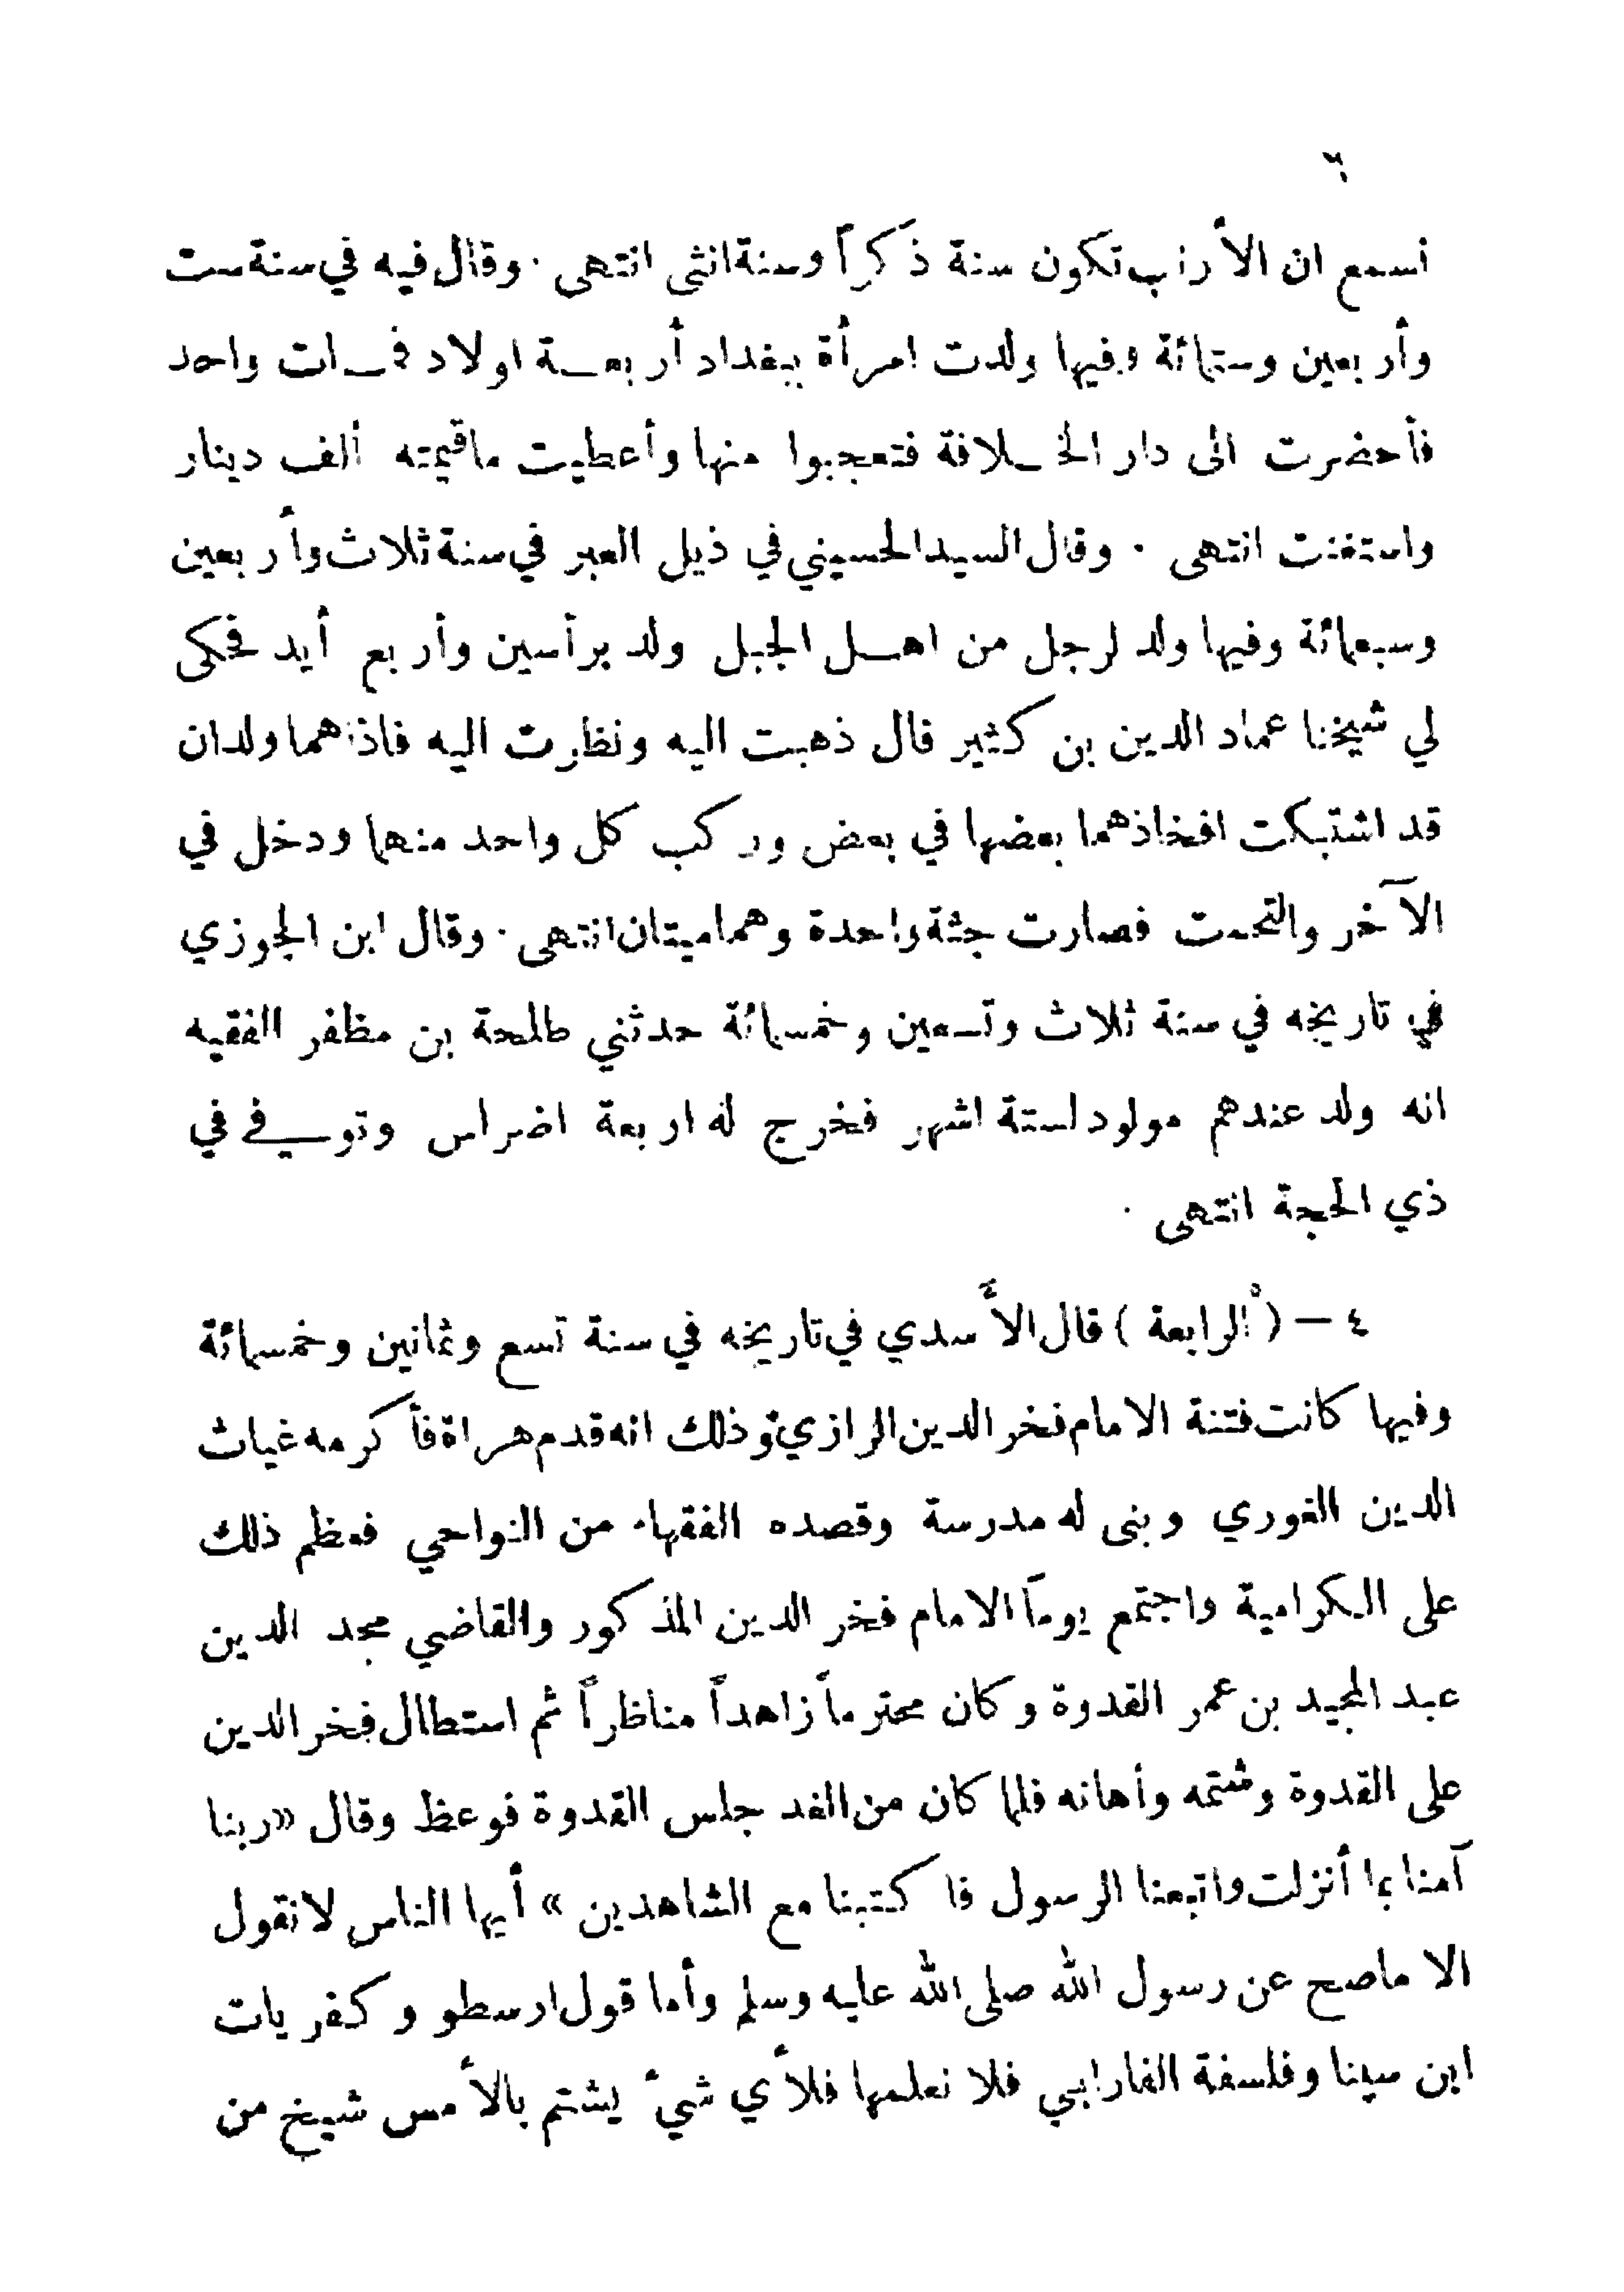 ٦
نسمع ان الأرانب تكون سنة ذكراً وسنة انثى انتهى . وقال فيه في سنة ست
وأربعين وستمائة وفيها ولدت امرأة ببغداد أربعة اولاد فمات واحد
فأحضرت الى دار الخلافة فتعجبوا منها وأعطيت ماقيمته ألف دينار
واستغنت انتهى . وقال السيد الحسيني في ذيل العبر في سنة ثلاث وأربعين
وسبعمائة وفيها ولد لرجل من اهل الجبل ولد برأسين وأربع أيد فحكى
لي شيخنا عماد الدين بن كثير قال ذهبت اليه ونظرت اليه فاذا هما ولدان
قد اشتبكت افخاذهما بعضها في بعض وركب كل واحد منهما ودخل في
الآخر والتحمت فصارت جثة واحدة وهما ميتان انتهى . وقال ابن الجوزي
في تاريخه في سنة ثلاث وتسعين وخمسمائة حدثني طلحة بن مظفر الفقيه
انه ولد عندهم مولود لستة اشهر فخرج له اربعة اضراس وتوفي في
ذي الحجة انتهى .
٤ — ( الرابعة ) قال الأسدي في تاريخه في سنة تسع وثمانين وخمسمائة
وفيها كانت فتنة الامام فخر الدين الرازي وذلك انه قدم هراة فأكرمه غياث
الدين الغوري وبنى له مدرسة وقصده الفقهاء من النواحي فعظم ذلك
على الكرامية واجتمع يوماً الامام فخر الدين المذكور والقاضي مجد الدين
عبد المجيد بن عمر القدوة وكان محترماً زاهداً مناظراً ثم استطال فخر الدين
على القدوة وشتمه وأهانه فلما كان من الغد جلس القدوة فوعظ وقال «ربنا
آمنا بما أنزلت واتبعنا الرسول فاكتبنا مع الشاهدين » أيها الناس لا نقول
الا ماصح عن رسول الله صلى الله عليه وسلم وأما قول ارسطو وكفريات
ابن سينا وفلسفة الفارابي فلا نعلمها فلأي شيء يشتم بالأمس شيخ من